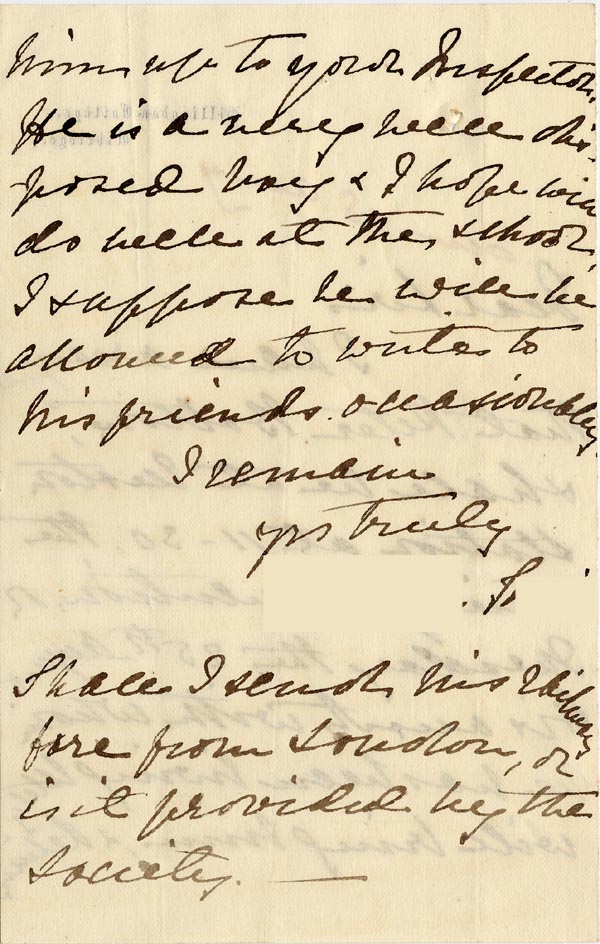 him up to your Inspector.
He is a very well dis-
posed boy & I hope will
do well at the school
I suppose he will be
allowed to write to
his friends occasionally.
I remain
yrs truly
Shall I send his railway
fare from London, or
is it provided by the
Society. —